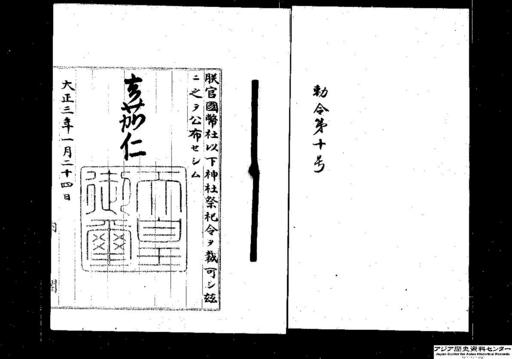 勅令第十号
朕官國幣社以下神社祭祀令ヲ裁可シ玆
ニ之ヲ公布セシム
嘉仁
天皇御璽
大正三年一月二十四日
内閣
アジア歴史資料センター
Japan Center for Asian Historical Records